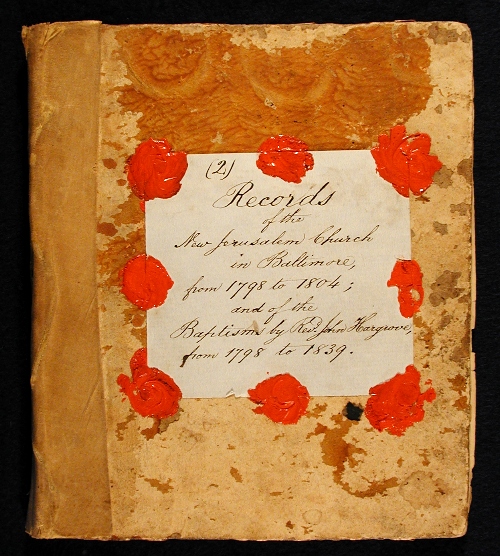 (2)
Records
of the
New Jerusalem Church
in Baltimore,
from 1798 to 1804;
and of the
Baptisms by Revd. John Hargrove,
from 1798 to 1839.